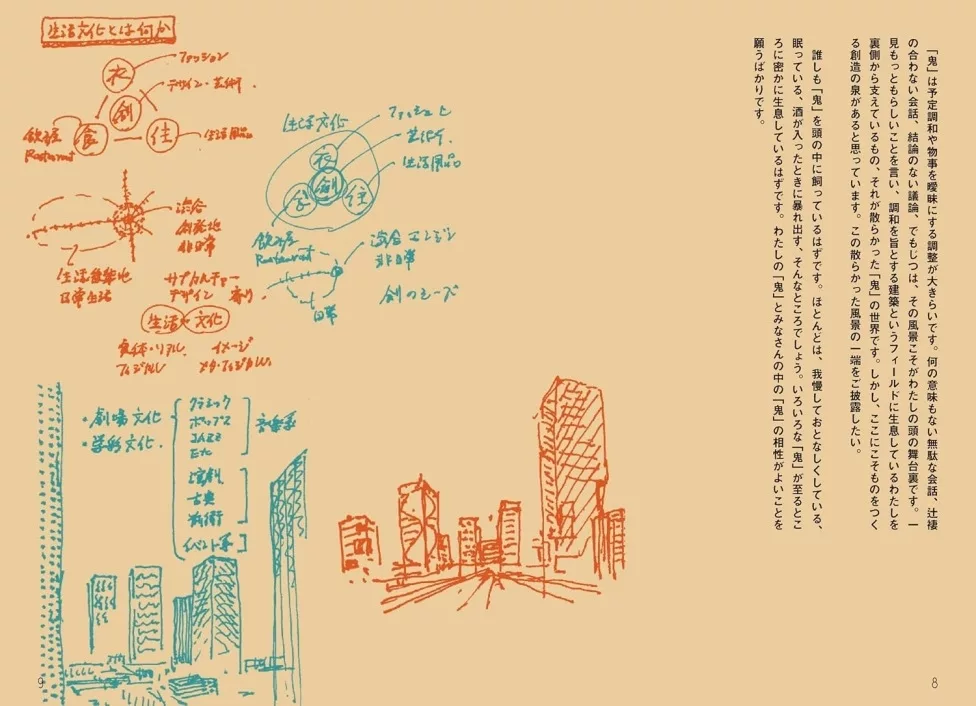 「鬼」は予定調和や物事を曖昧にする調整が大きらいです。何の意味もない無駄な会話、辻褄
の合わない会話、結論のない議論、でもじつは、その風景こそがわたしの頭の舞台裏です。一
見もっともらしいことを言い、調和を旨とする建築というフィールドに生息しているわたしを
裏側から支えているもの、それが散らかった「鬼」の世界です。しかし、ここにこそものをつく
る創造の泉があると思っています。この散らかった風景の一端をご披露したい。
誰しも「鬼」を頭の中に飼っているはずです。ほとんどは、我慢しておとなしくしている、
眠っている、酒が入ったときに暴れ出す、そんなところでしょう。いろいろな「鬼」が至るとこ
ろに密かに生息しているはずです。わたしの「鬼」とみなさんの中の「鬼」の相性がよいことを
願うばかりです。
8
生活文化とは何か
衣
ファッション
創
デザイン・芸術
食
住
生活用品
Restaurant
混合
非日常
日常生活
サブカルチャー
デザイン
生活
文化
実体・リアル
イメージ
生活文化
衣
創
食
住
芸術
生活用品
Restaurant
混合エンジン
非日常
日常
・劇場文化
クラシック
ポップス
JAZZ
Etc
音楽系
演劇
古典
イベント系
9